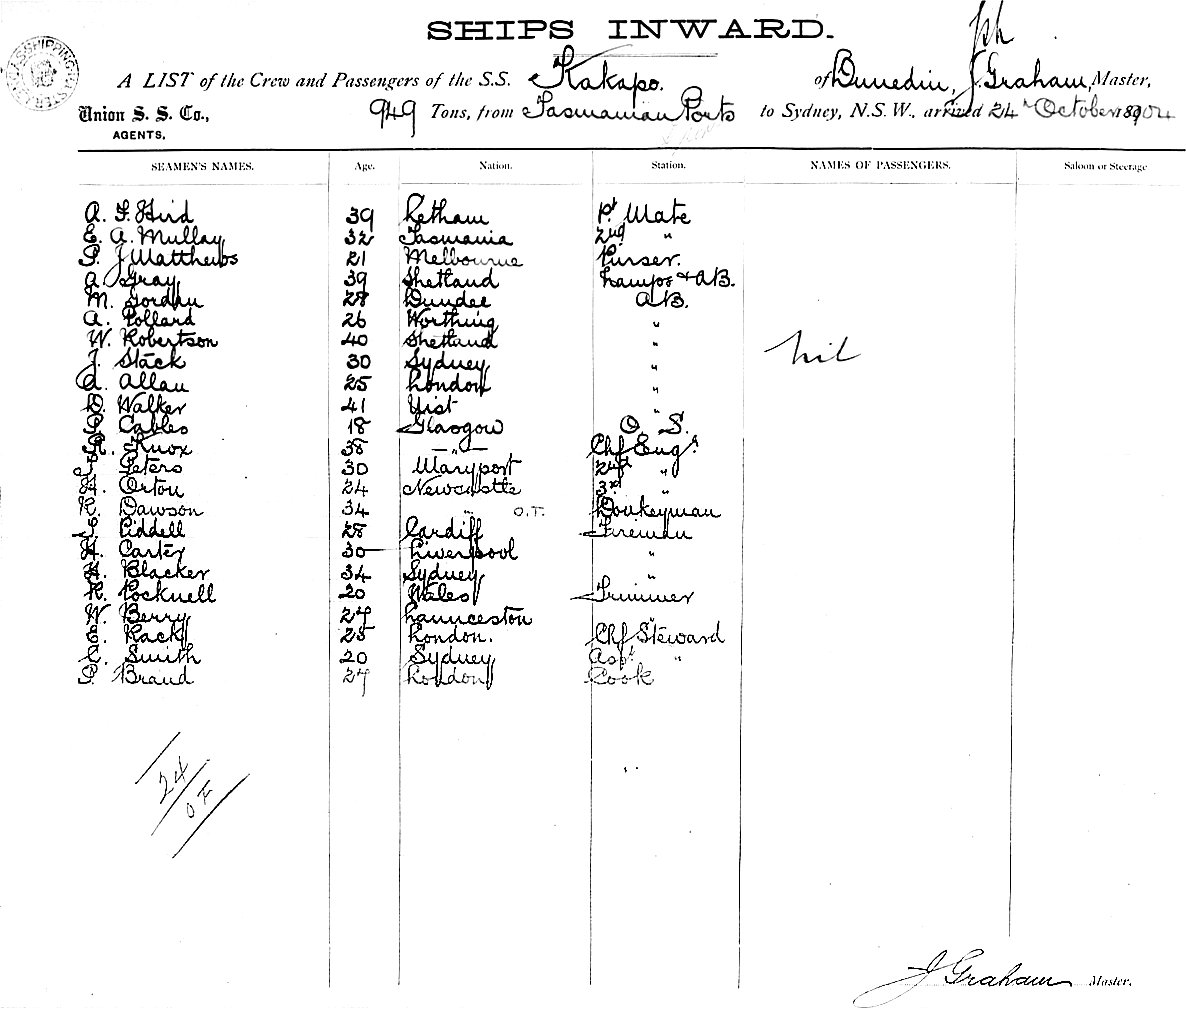 SHIPS INWARD.
A LIST of the Crew and Passengers of the S.S. Kakapo. of Dunedin, J. Graham, Master,
Union S. S. Co., 949 Tons, from Tasmanian Ports to Sydney, N.S.W., arrived 24 October 1904
AGENTS.
SEAMEN'S NAMES. Age. Nation. Station. NAMES OF PASSENGERS. Saloon or Steerage
A. F. Hird 39 1st Mate
E. A. Mullay 32 Tasmania 2nd "
P. J Matthews 21 Melbourne Purser.
A Gray 39 Shetland Lamps & AB.
M. Gordon 28 Dundee AB.
A. Pollard 26 Worthing "
W. Robertson 40 Shetland "
J. Stack 30 Sydney "
nil
A. Allan 25 London "
D. Walker 41 Uist "
P. Cables 18 Glasgow O. S.
R. Knox 38 " Chf Engr
J. Peters 30 Maryport 2nd "
H. Orton 24 Newcastle 3rd "
R. Dawson 34 " O.T. Donkeyman
S. Liddell 28 Cardiff Fireman
H. Carter 30 Liverpool "
H. Blacker 34 Sydney "
R. Pocknell 20 Wales Trimmer
W. Berry 27 Launceston "
E. Rack 25 London. Chf Steward
C. Smith 20 Sydney Asst "
P. Brand 27 London Cook
24
O F
J Graham Master.